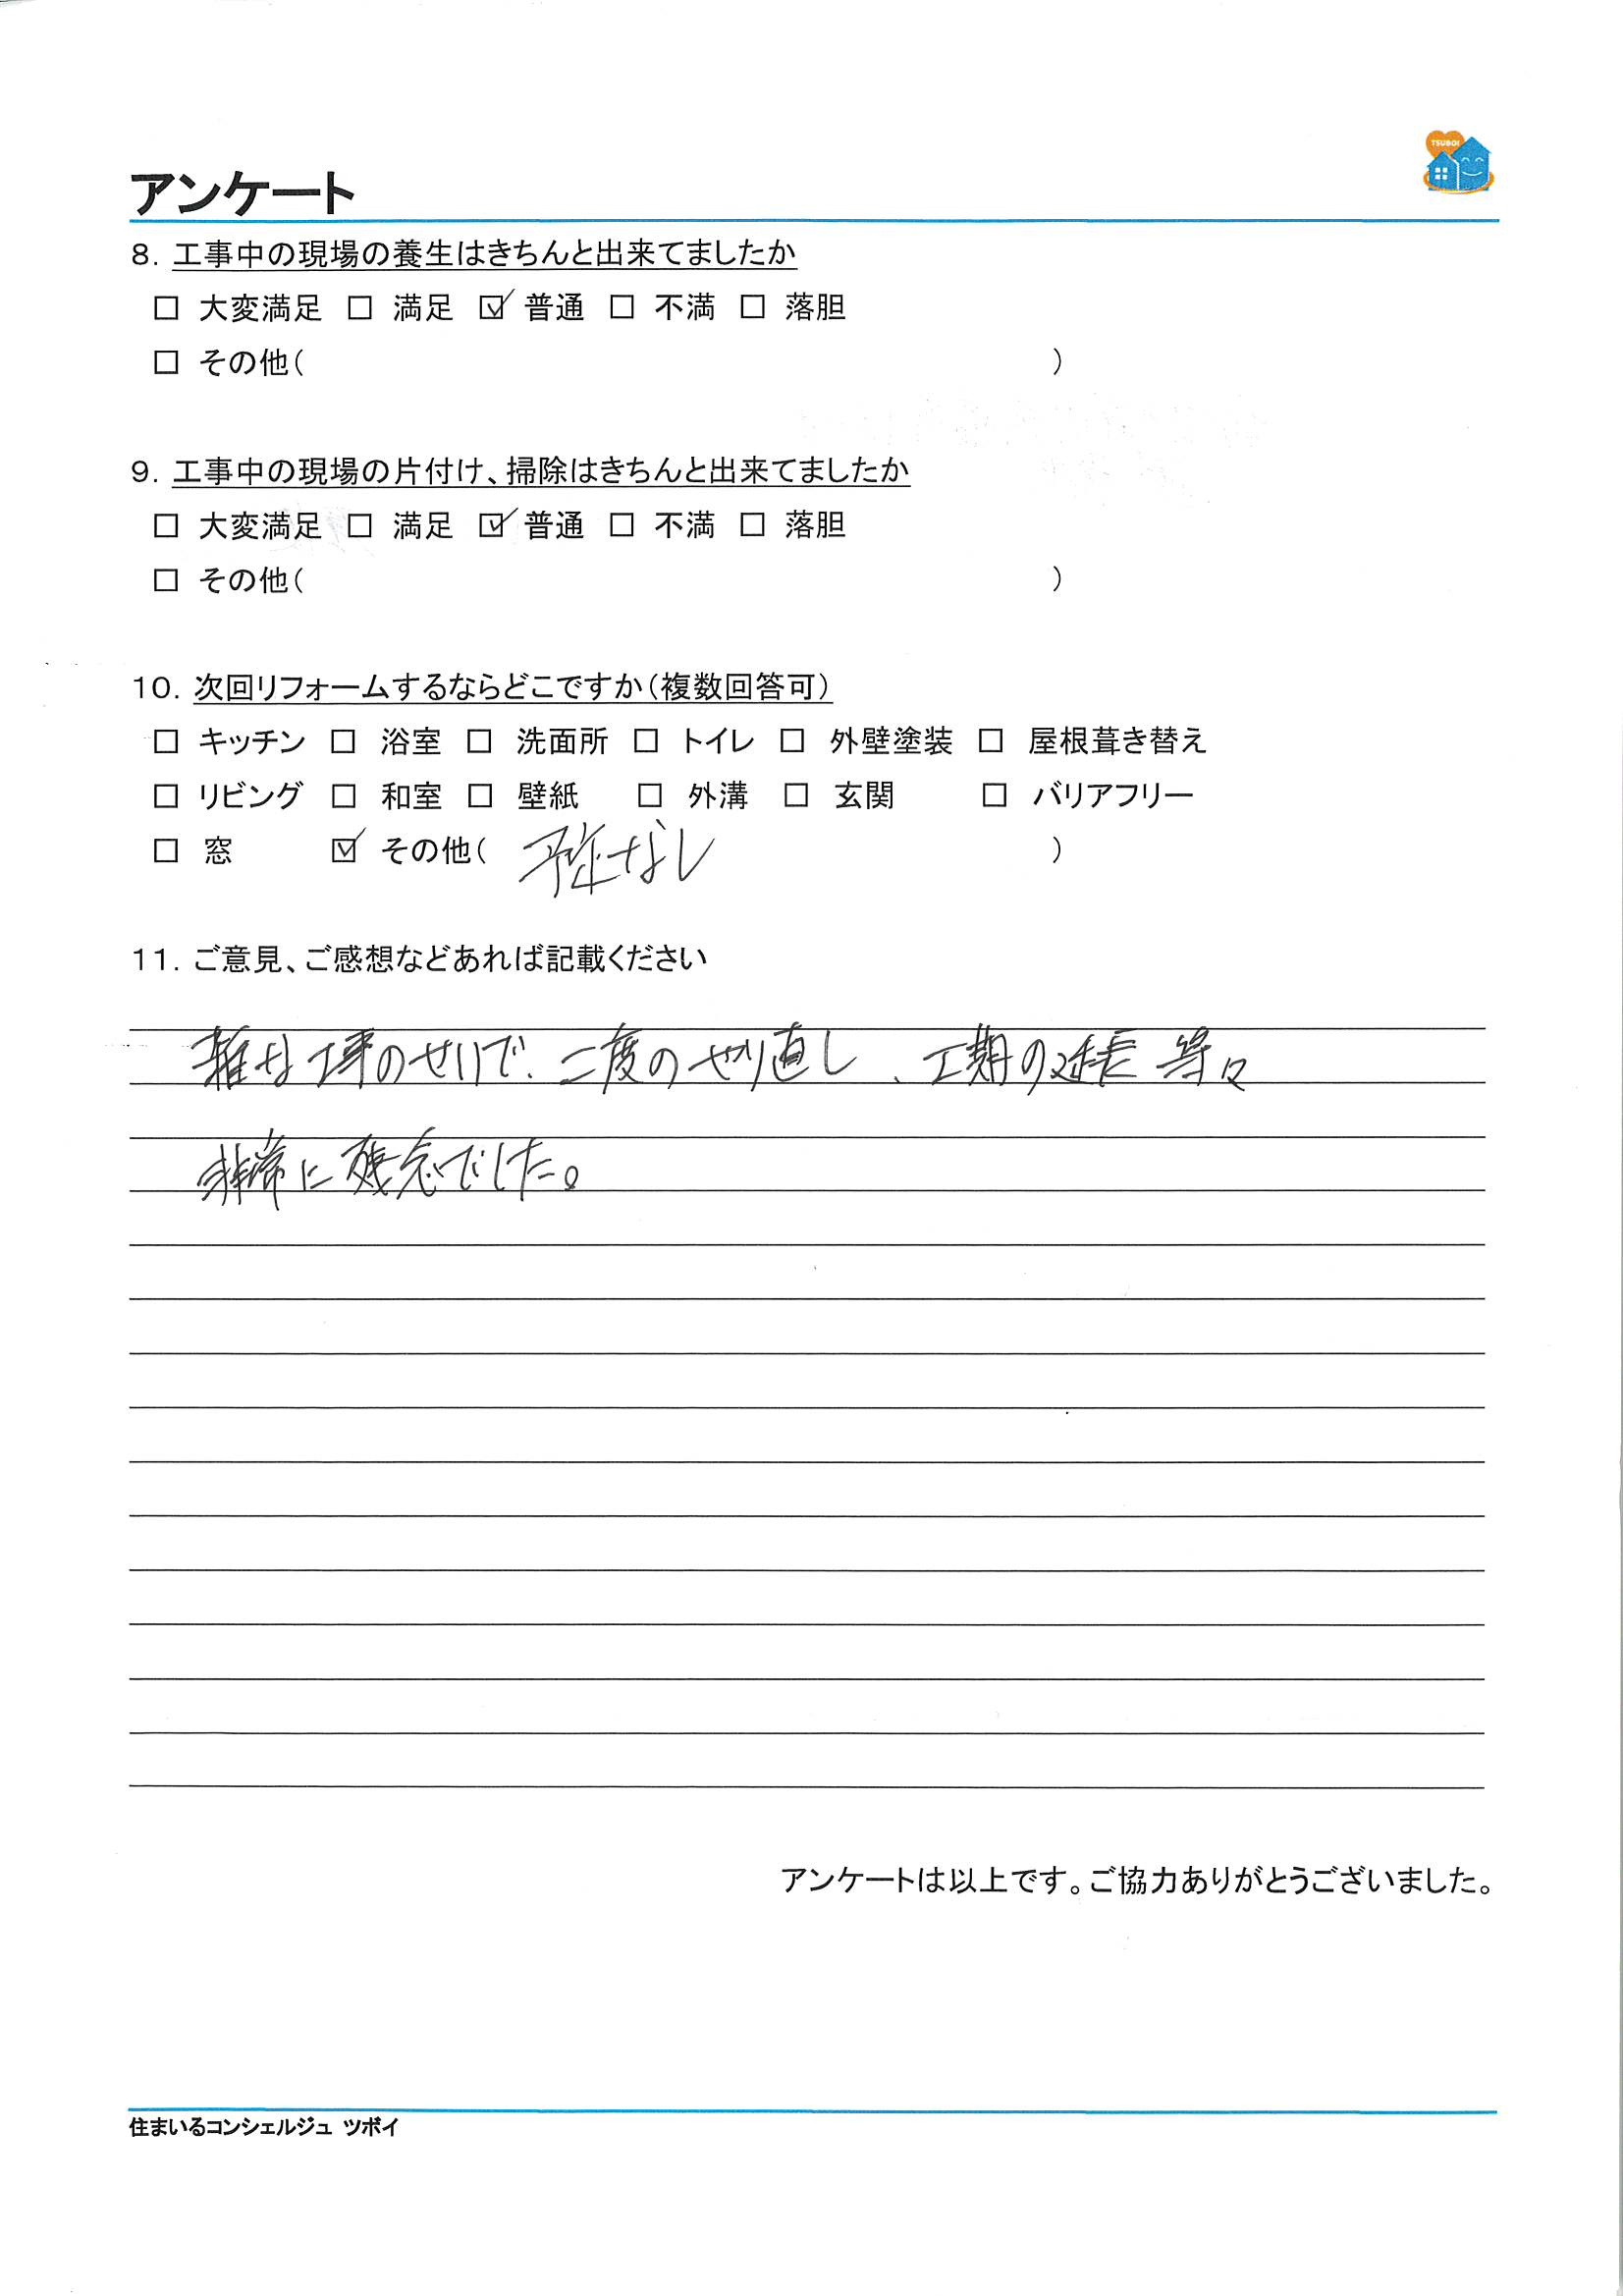 TSUBOI
アンケート
8. 工事中の現場の養生はきちんと出来てましたか
□ 大変満足 □ 満足 ☑ 普通 □ 不満 □ 落胆
□ その他( )
9. 工事中の現場の片付け、掃除はきちんと出来てましたか
□ 大変満足 □ 満足 ☑ 普通 □ 不満 □ 落胆
□ その他( )
10. 次回リフォームするならどこですか(複数回答可)
□ キッチン □ 浴室 □ 洗面所 □ トイレ □ 外壁塗装 □ 屋根葺き替え
□ リビング □ 和室 □ 壁紙 □ 外溝 □ 玄関 □ バリアフリー
□ 窓 ☑ その他( 予定なし )
11. ご意見、ご感想などあれば記載ください
雑な工事のせいで、二度のやり直し、工期の延長 等々
非常に残念でした。
アンケートは以上です。ご協力ありがとうございました。
住まいるコンシェルジュ ツボイ